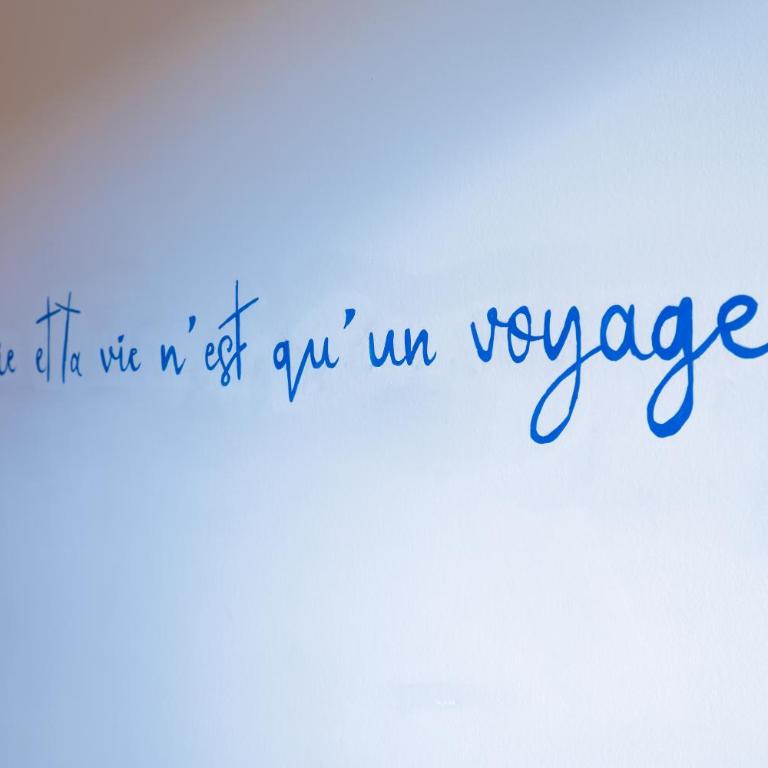 et ta vie n'est qu'un voyage